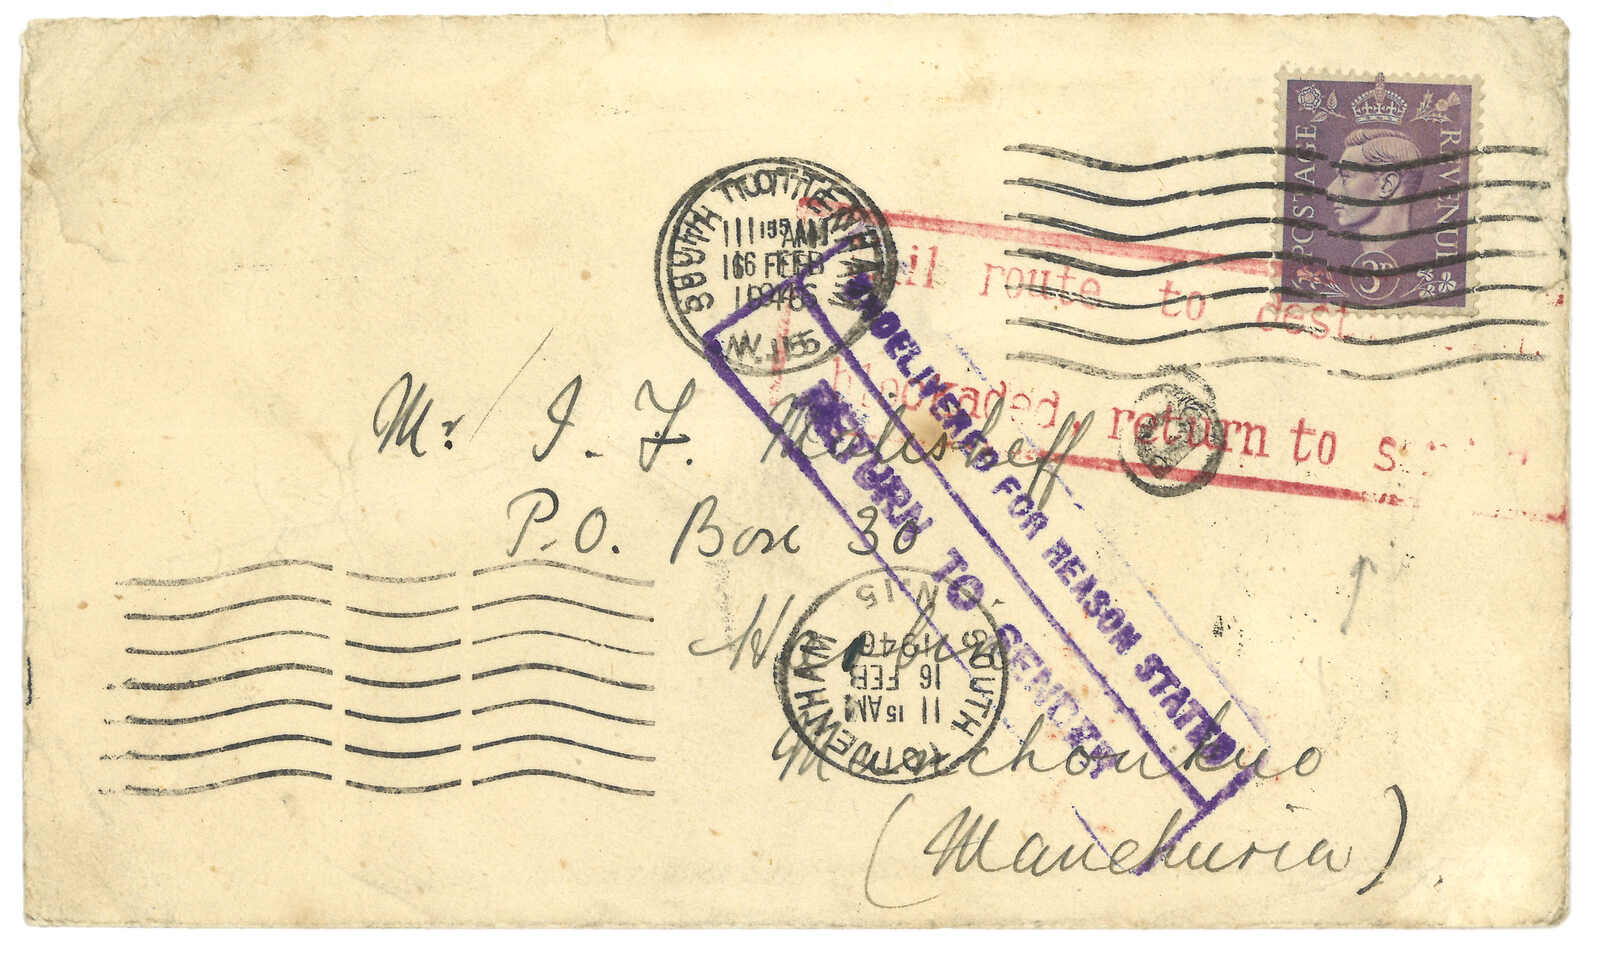 POSTAGE REVENUE
3D
SOUTH TOTTENHAM
11 15 AM
16 FEB
1946
N.15
route to dest
blockaded, return to
UNDELIVERED FOR REASON STATED
RETURN TO SENDER
Mr. I. F. Malisheff
P.O. Box 30
Harbin
Manchoukuo
(Manchuria)
SOUTH TOTTENHAM
11 15 AM
16 FEB
1946
N.15